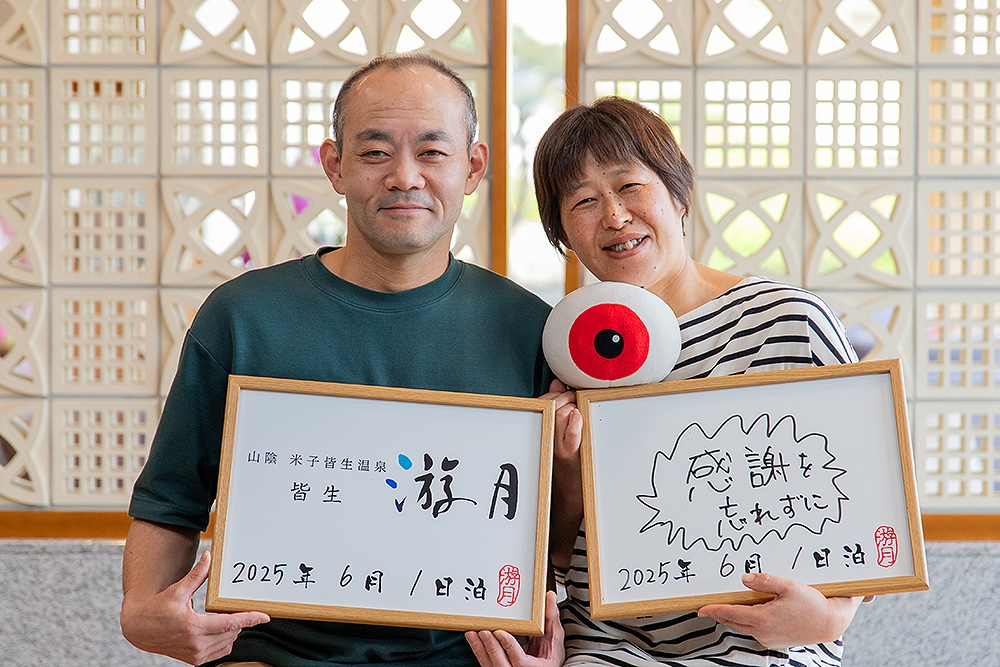 山陰 米子皆生温泉
皆生 游月
2025年 6月 1日泊
游月
感謝を
忘れずに
2025年 6月 1日泊
游月